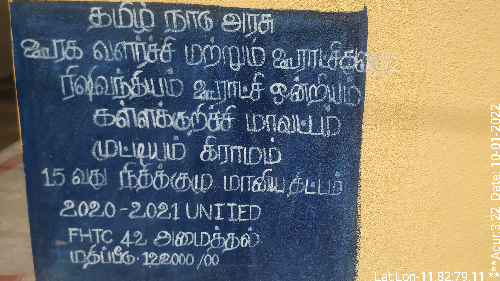 தமிழ் நாடு அரசு
ஊரக வளர்ச்சி மற்றும் ஊராட்சித்துறை
ரிஷிவந்தியம் ஊராட்சி ஒன்றியம்
கள்ளக்குறிச்சி மாவட்டம்
முட்டியம் கிராமம்
15 வது நிதிக்குழு மானிய திட்டம்
2020-2021 UNITED
FHTC 42 அமைத்தல்
மதிப்பீடு-122000/00
LatLon-11.82,79.11
***Acur 3.22 Date 10-01-2022